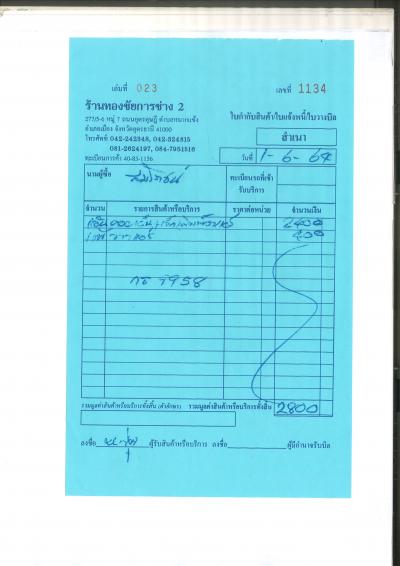 เล่มที่ 023 เลขที่ 1134
ร้านทองชัยการช่าง 2
277/5-6 หมู่ 7 ถนนอุดรดุษฎี ตำบลหมากแข้ง
อำเภอเมือง จังหวัดอุดรธานี 41000
โทรศัพท์ 042-242348, 042-324815
081-2624197, 084-7951516
ทะเบียนการค้า 40-83-1136
ใบกำกับสินค้า/ใบแจ้งหนี้/ใบวางบิล
สำเนา
วันที่ 1-6-64
นามผู้ซื้อ
ทะเบียนรถที่เข้ารับบริการ
จำนวน รายการสินค้าหรือบริการ ราคาต่อหน่วย จำนวนเงิน
2400
400
กธ 7958
รวมมูลค่าสินค้าหรือบริการทั้งสิ้น (ตัวอักษร) รวมมูลค่าสินค้าหรือบริการทั้งสิ้น 2800
ลงชื่อ ผู้รับสินค้าหรือบริการ ลงชื่อ ผู้มีอำนาจรับบิล